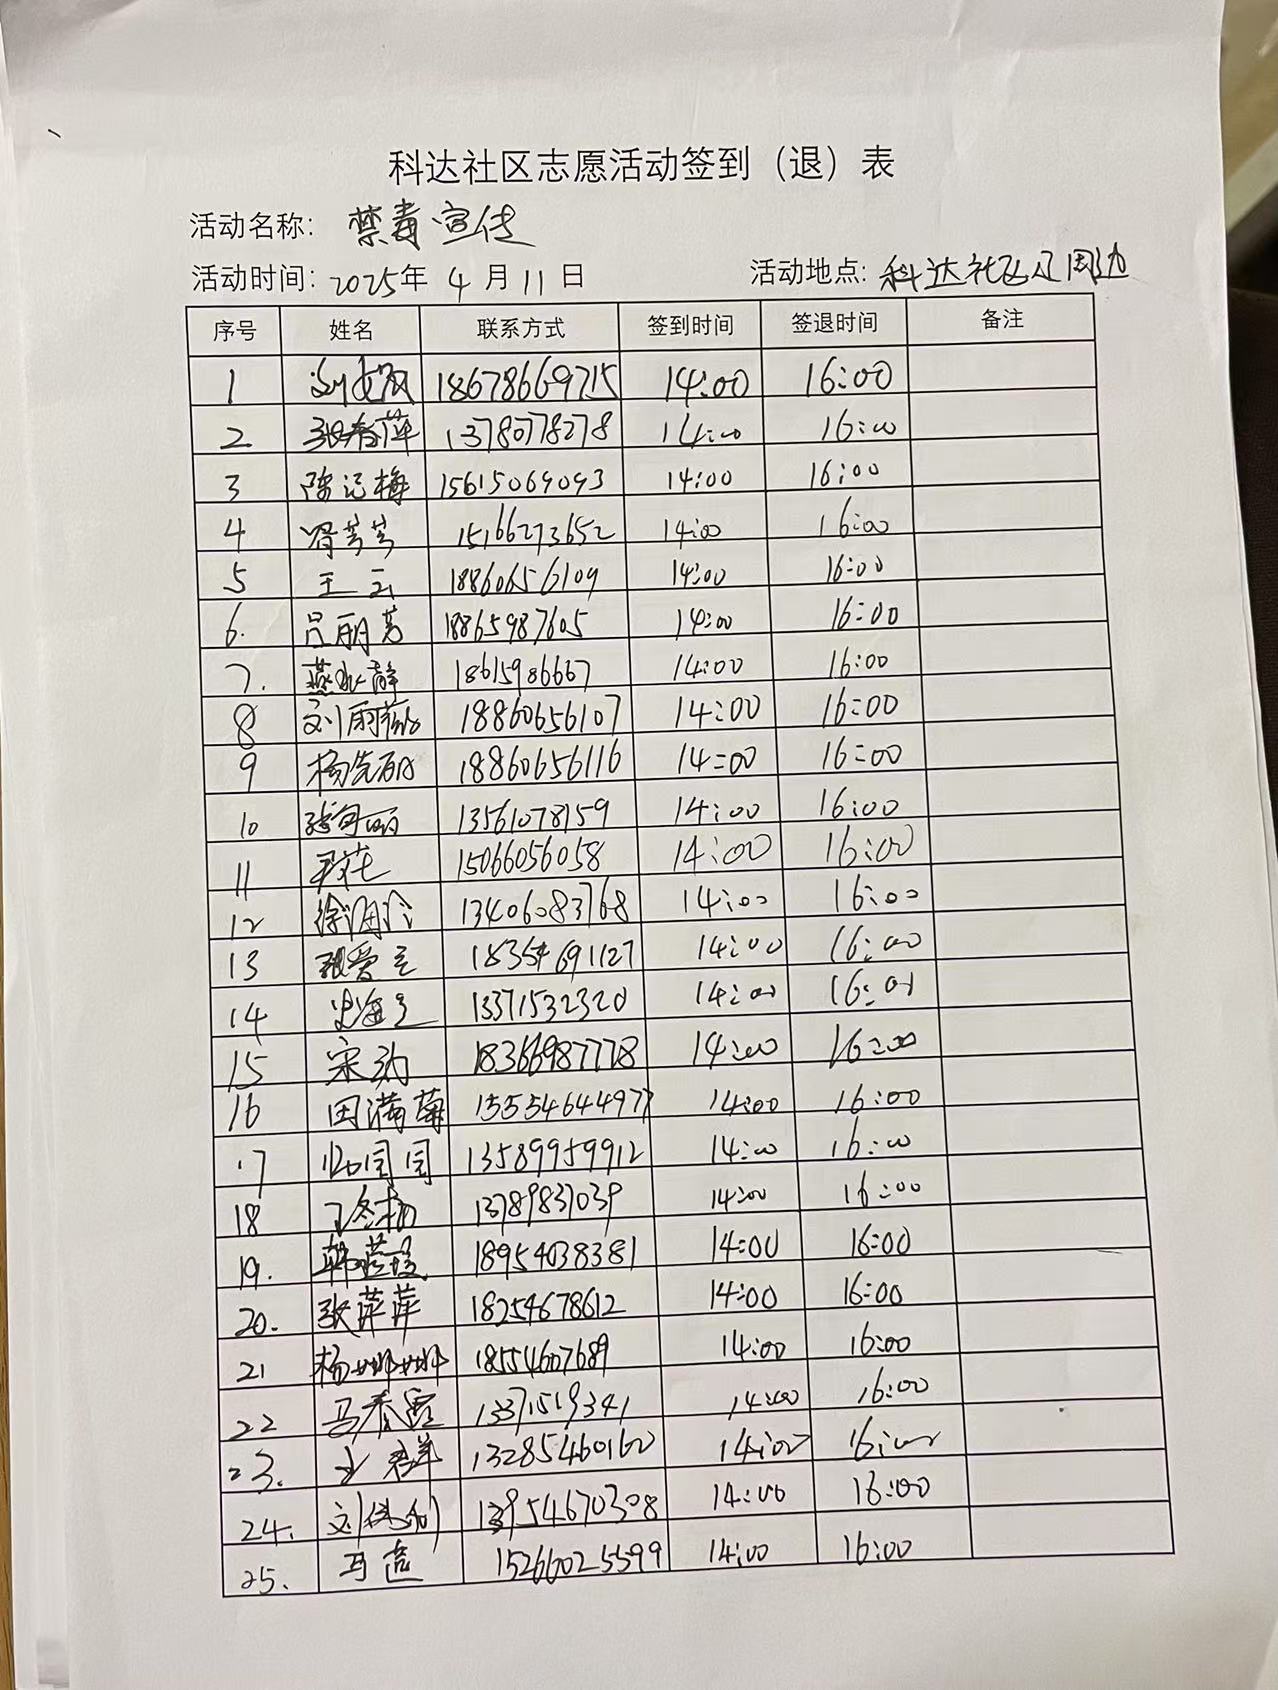 科达社区志愿活动签到（退）表
活动名称：禁毒宣传
活动时间：2025年 4 月 11 日 活动地点：科达社区及周边
序号 姓名 联系方式 签到时间 签退时间 备注
1 18678669715 14:00 16:00
2 张春萍 13780778278 14:00 16:00
3 陈记梅 15615069093 14:00 16:00
4 胥芳芳 15166273652 14:00 16:00
5 王云 18860656109 14:00 16:00
6. 吕丽芳 18865987605 14:00 16:00
7. 燕永静 18615986667 14:00 16:00
8 刘雨薇 18860656107 14:00 16:00
9 杨先丽 18860656116 14:00 16:00
10 13561078159 14:00 16:00
11 尹花 15066056058 14:00 16:00
12 13406083768 14:00 16:00
13 18354691127 14:00 16:00
14 13371532320 14:00 16:00
15 宋劲 18366987778 14:00 16:00
16 田满菊 15554644977 14:00 16:00
17 13589959912 14:00 16:00
18 13789837039 14:00 16:00
19. 18954038381 14:00 16:00
20. 张萍萍 18254678612 14:00 16:00
21 杨娜娜 18554607689 14:00 16:00
22 马春霞 13371519341 14:00 16:00
23. 13285460160 14:00 16:00
24. 13954670308 14:00 16:00
25. 15266025599 14:00 16:00